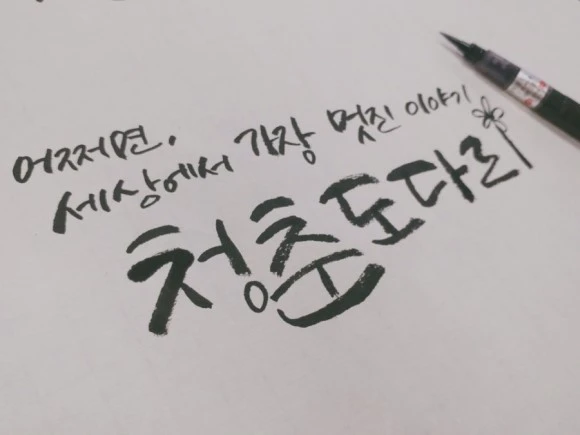 어쩌면,
세상에서 가장 멋진 이야기
청춘도다리